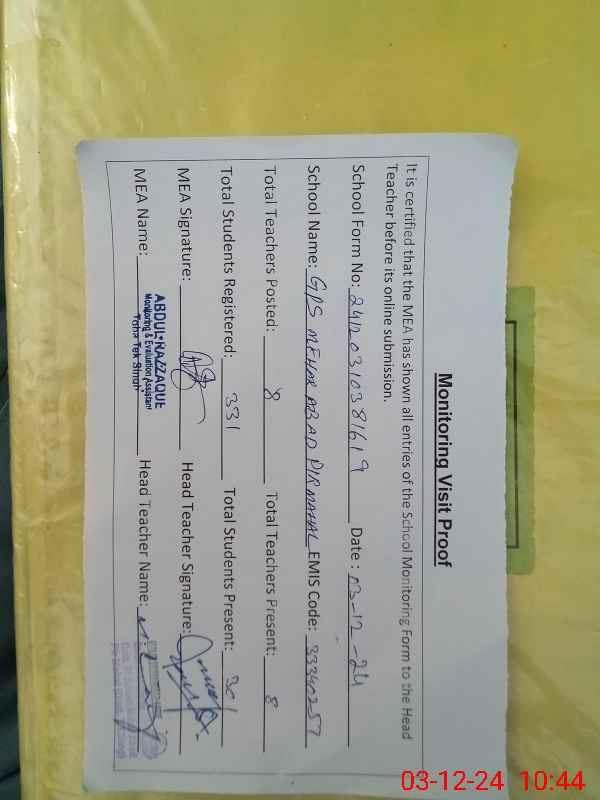 Monitoring Visit Proof
It is certified that the MEA has shown all entries of the School Monitoring Form to the Head
Teacher before its online submission.
School Form No: 24120310381619 Date : 03-12-24
School Name: GPS MEHAR ABAD PIR MAHAL EMIS Code: 33340257
Total Teachers Posted: 8 Total Teachers Present: 8
Total Students Registered: 331 Total Students Present: 301
MEA Signature: Head Teacher Signature:
MEA Name: ABDUL-RAZZAQUE Head Teacher Name:
Monitoring & Evaluation Assistant
Toba Tek Singh
03-12-24 10:44